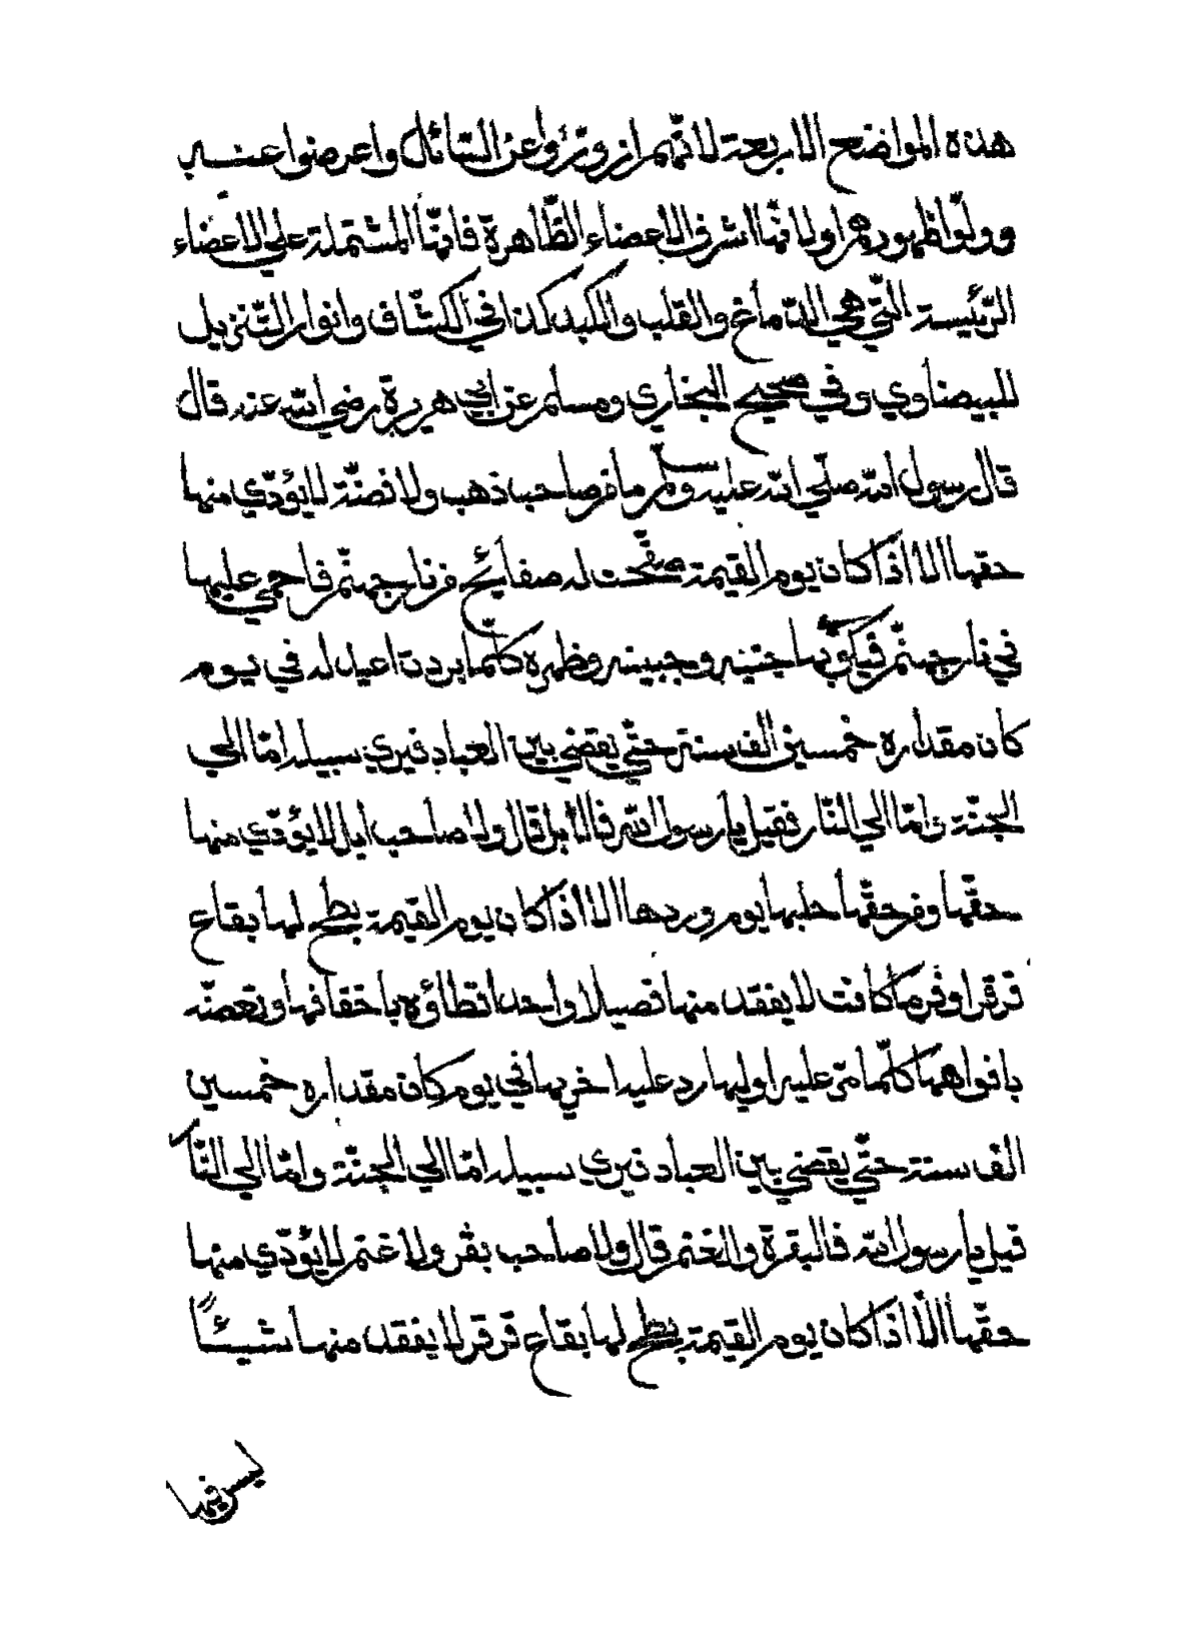 هذه المواضع الاربعة لانّهم ازورّوا عن السّائل واعرضوا عنه
وولّوا ظهورهم اولانّها اشرف الاعضاء الظّاهرة فانّها المشتملة علي الاعضاء
الرّئيسة الّتي هي الدّماغ والقلب والكبد كذا في الكشّاف وانوار التّنزيل
للبيضاوي وفي صحيح البخاري ومسلم عن ابي هريرة رضي الله عنه قال
قال رسول الله صلّي الله عليه وسلّم ما من صاحب ذهب ولا فضّة لا يؤدّي منها
حقها الا اذا كان يوم القيمة صفّحت له صفائح من نار جهنّم فاحمي عليها
في نار جهنّم فيكوي بها جنبه وجبينه وظهره كلّما بردت اعيد له في يوم
كان مقداره خمسين الف سنة حتّي يقضي بين العباد فيري سبيله امّا الي
الجنّة وامّا الي النّار فقيل يا رسول الله فالابل قال ولا صاحب ابل لا يؤدّي منها
حقّها ومن حقّها حلبها يوم وردها الا اذا كان يوم القيمة بطح لها بقاع
قرقر اوفر ما كانت لا يفقد منها فصيلا واحدا تطاؤه باخفافها وتعضّه
بافواهها كلّما مرّ عليه اوليها رد عليه اخريها في يوم كان مقداره خمسين
الف سنة حتّي يقضي بين العباد فيري سبيله امّا الي الجنّة وامّا الي النّار
قيل يا رسول الله فالبقرة والغنم قال ولا صاحب بقر ولا غنم لا يؤدّي منها
حقّها الّا اذا كان يوم القيمة بطح لها بقاع قرقر لا يفقد منها شيئًا
ليس فيها